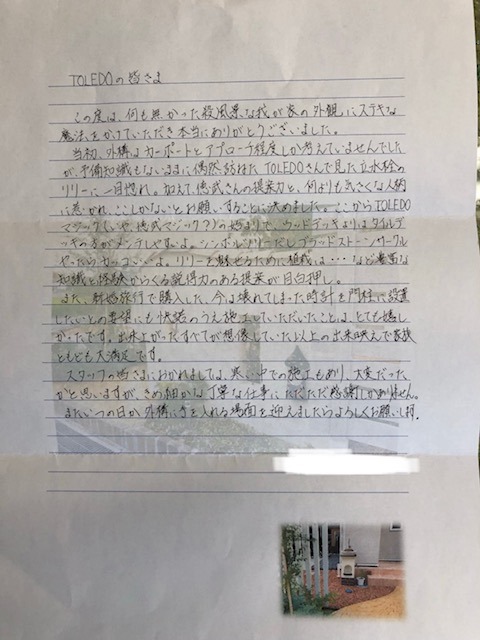 TOLEDOの皆さま
この度は、何も無かった殺風景な我が家の外観にステキな
魔法をかけていただき本当にありがとうございました。
当初、外構はカーポートとアプローチ程度しか考えていませんでした
が、予備知識もないままに偶然訪ねた TOLEDOさんで見た立水栓の
リリーに一目惚れ。加えて、徳武さんの提案力と、何よりも気さくな人柄
に惹かれ、ここしかないとお願いすることに決めました。ここからTOLEDO
マジック(いや、徳武マジック?)の始まりで、ウッドデッキよりはタイルデ
ッキの方がメンテしやすいよ。シンボルツリーだしブラッドストーンサークル
やったらカッコいいよ。リリーを魅せるために植栽は・・・など豊富な
知識と経験からくる説得力のある提案が目白押し。
また、新婚旅行で購入した、今は壊れてしまった時計を門柱に設置
したいとの要望にも快諾のうえ施工していただいたことは、とても嬉し
かったです。出来上がったすべてが想像していた以上の出来映えで家族
ともども大満足です。
スタッフの皆さまにおかれましては、寒い中での施工もあり、大変だった
かと思いますが、きめ細かな丁寧な仕事にただただ感謝しかありません。
またいつの日か外構に手を入れる場面を迎えましたらよろしくお願いし